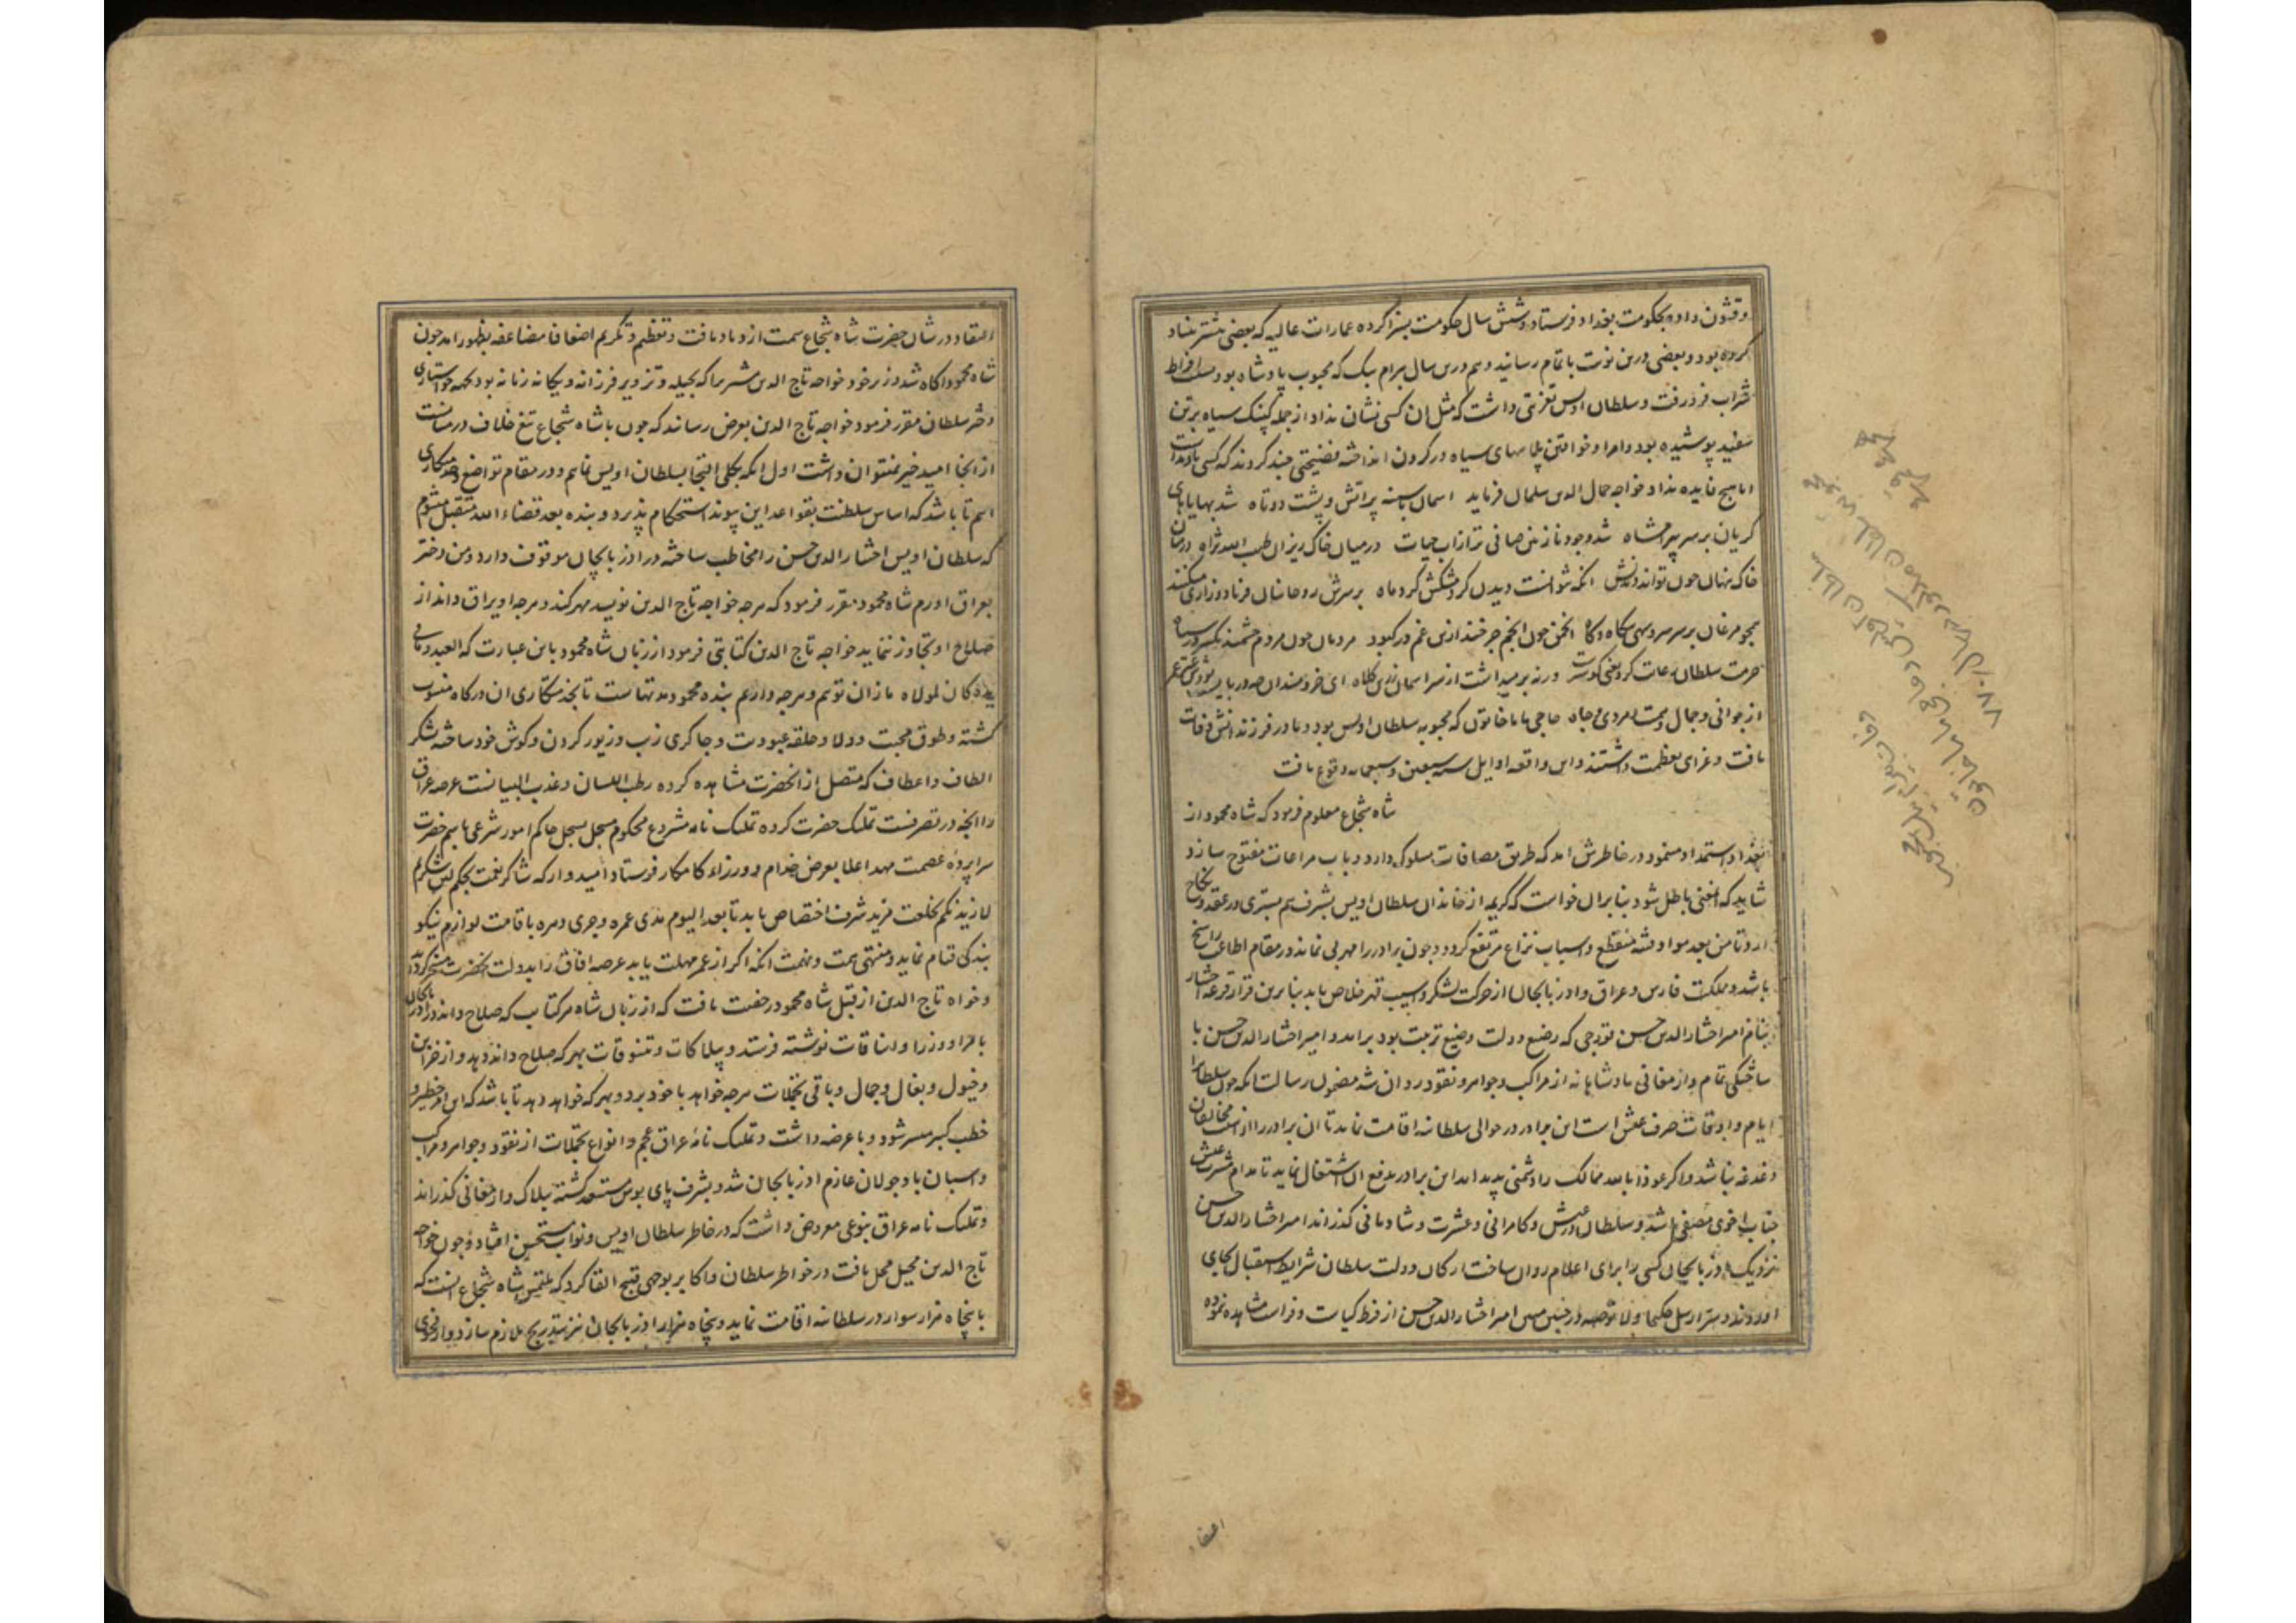 وقشون داده بحکومت بغداد فرستاد و شش سال حکومت بسزا کرده عمارات عالیه که بعضی پیشتر بنیاد
کرده بود و بعضی درین نوبت باتمام رسانید و هم درین سال بیرام بیک که محبوب پادشاه بود بسبب افراط
شراب فرو رفت و سلطان اویس تعزیتی داشت که مثل ان کسی نشان نداد از جمله کپنک سیاه بر تن
سفید پوشیده بود و امرا و خواتین پلاسهای سیاه در کردن انداخته فضیحتی چند کردند که کسی یاد نداشت
اما هیچ فایده نداد و خواجه جمال الدین سلمان فرماید اسمان با سینه پر اتش و پشت دوتاه شد بهایاهای
کریان بر سر میرامشاه شد وجود نازنین صافی تر از اب حیات در میان خاک ریزان طیب الله ثراه در میان
خاک پنهان چون تواند دیدنش انکه نتوانست دیدن کرد مشکش کرد ماه بر سرش روحانیان فریاد و زاری میکنند
همچو مرغان بر سر سرو سهی بیکاه و کاه انجمن چون انجم چرخند ازین غم در کبود مردمان چون مردم چشمند یکسر در سیاه
حرمت سلطان رعایت کرد یعنی کوسرت ورنه بر میداشت از سر اسمان زرین کلاه ای خردمندان
از جوانی و جمال و حاجی ماما خاتون که محبوبه سلطان اویس بود و مادر فرزندانش وفات
یافت و عزای بعظمت داشتند و این واقعه اوایل سنه سبعین و سبعمایه وقوع یافت
شاه شجاع معلوم فرمود که شاه محمود از
بغداد استمداد مینمود در خاطرش امد که طریق مصافات مسلوک دارد و باب مراعات مفتوح سازد
شاید که انمعنی باطل شود بنابران خواست که کریمه از خاندان سلطان اویس بشرف هم بستری در عقد نکاح
ارد تا من بعد مواد فتنه منقطع و اسباب نزاع مرتفع کردد و چون برادر را مهربی نماند در مقام اطاعت راسخ
باشد و مملکت فارس و عراق و اذربایجان از حرکت لشکر و اسیب قهر خلاص یابد بنابرین قرار قرعه اختیار
بنام امیر اختیار الدین حسن قورچی که رضیع دولت و ضیع تربیت بود برامد و امیر اختیار الدین حسن با
ساختکی تمام و ازمغانی پادشاهانه از مراکب و جواهر و نقود روان شد مضمون رسالت انکه چون سلطان را
ایام و اوقات صرف عیش است این برادر در حوالی سلطانیه اقامت نماید تا ان برادر را از مخالفان
دغدغه نباشد و اکر عوذا بالله ممالک را دشمنی پدید امد این برادر بدفع ان اشتغال نماید تا مدام مشرب عیش
جناب اخوی مصفی باشد و سلطان در عیش و کامرانی و عشرت و شادمانی کذراند امیر اختیار الدین حسن
نزدیک اذربایجان کسی را برای اعلام روان ساخت ارکان دولت سلطان شرایط استقبال بجای
اوردند و بمقتضای ارسل حکیما و لا توصه در حین امیر اختیار الدین حسن از فرط کیاست و فراست مشاهده نموده
اعتقاد
سلطان اویس
وفات
۷۷۰
التقا در شان حضرت شاه شجاع سمت ازدیاد یافت و تعظیم و تکریم اضعافا مضاعفه بظهور امد چون
شاه محمود اکاه شد وزیر خود خواجه تاج الدین مشیر را که بحیله و تزویر فرزانه و یکانه زمانه بود بجهت خواستاری
دختر سلطان مقرر فرمود خواجه تاج الدین بعرض رسانید که چون با شاه شجاع تیغ خلاف در میانست
از انجا امید خیر نمیتوان داشت اول انکه بکلی التجا بسلطان اویس نمایم و در مقام تواضع و خدمتکاری
ایم تا باشد که اساس سلطنت بقواعد این پیوند استحکام پذیرد و بنده بعد قضاء الله متقبل میشوم
که سلطان اویس اختیار الدین حسن را مخاطب ساخته در اذربایجان موقوف دارد و من دختر
بعراق اورم شاه محمود مقرر فرمود که هرچه خواجه تاج الدین نویسد مهر کند و هرچه او یراق داند از
صلاح او تجاوز ننماید خواجه تاج الدین کتابتی فرمود از زبان شاه محمود باین عبارت که العبد و ما فی
یده کان لمولاه ما زان توییم و هرچه داریم بنده محمود مدتهاست تا بخدمتکاری ان درکاه منسوب
کشته و طوق محبت و ولا و حلقه عبودیت و چاکری زیب و زیور کردن و کوش خود ساخته شکر
الطاف و اعطاف که متصل از انحضرت مشاهده کرده رطب اللسان و عذب البیانست عرصه عراق
را انچه در تصرفست تملیک حضرت کرده تملیک نامه مشروع محکوم مسجل بسجل حاکم امور شرعی باسم حضرت
سراپرده عصمت مهد اعلا بعرض خدام و وزراء کامکار فرستاد امیدوار که شاکر نعمت بحکم لئن شکرتم
لازیدنکم بخلعت مزید شرف اختصاص یابد تا بعد الیوم مدی عمره و دهره باقامت لوازم نیکو
بندکی قیام نماید و منتهی همت و نهمت انکه اکر از عمر مهلت یابد عرصه افاق را بدولت انحضرت مسخر کرداند
و خواجه تاج الدین از قبل شاه محمود رخصت یافت که از زبان شاه هر کتابت که صلاح داند در اذربایجان
بامرا و وزرا و اناقات نوشته فرستد و بیلاکات و تنسوقات بهر که صلاح داند دهد و از خزاین
و خیول و بغال و جمال و باقی تجملات هرچه خواهد با خود برد و بهر که خواهد دهد تا باشد که این امر خطیر و
خطب کبیر میسر شود و با عرضه داشت و تملیک نامه عراق عجم و انواع تجملات از نقود و جواهر و مراکب
و اسبان باد جولان عازم اذربایجان شد و بشرف پای بوس مستسعد کشته بیلاک و ارمغانی کذرانید
و تملیک نامه عراق بنوعی معروض داشت که در خاطر سلطان اویس و نواب مستحسن افتاد و چون خواجه
تاج الدین مخیل محل یافت در خواطر سلطان و اکابر بوجهی قبیح القا کرد که ملتمس شاه شجاع انست که
با پنجاه هزار سوار در سلطانیه اقامت نماید و پنجاه هزار اذربایجان نیز بتدریج ملازم سازد و از روی